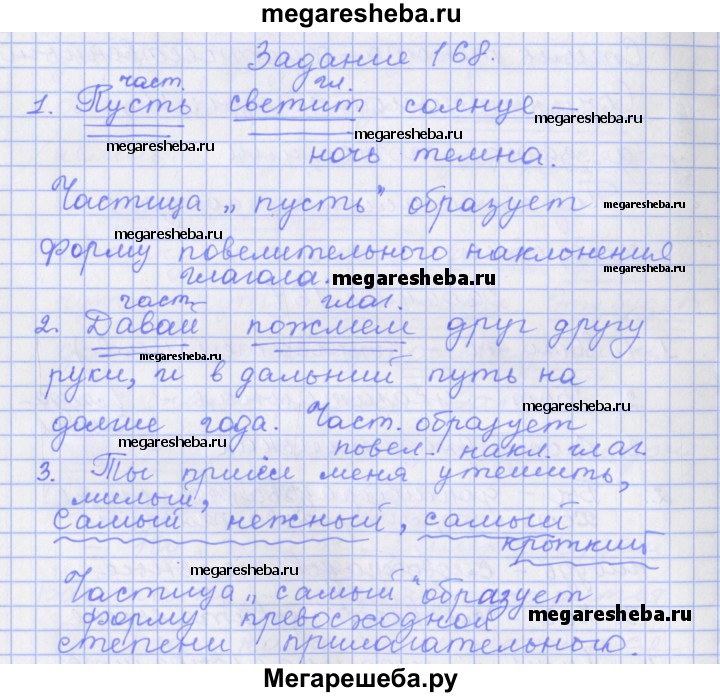 megaresheba.ru
Задание 168.
част. гл.
1. Пусть светит солнце –
megaresheba.ru
megaresheba.ru
megaresheba.ru
ночь темна.
Частица „пусть” образует
megaresheba.ru
megaresheba.ru
форму повелительного наклонения
глагола. megaresheba.ru
част. глаг.
2. Давай пожмем друг другу
megaresheba.ru
руки, и в дальний путь на
megaresheba.ru
долгие года. Част. образует
megaresheba.ru
повел. накл. глаг.
3. Ты пришёл меня утешить,
милый,
самый нежный, самый
кроткий
megaresheba.ru
Частица „самый” образует
форму превосходной megaresheba.ru
степени прилагательного.
Мегарешеба.ру